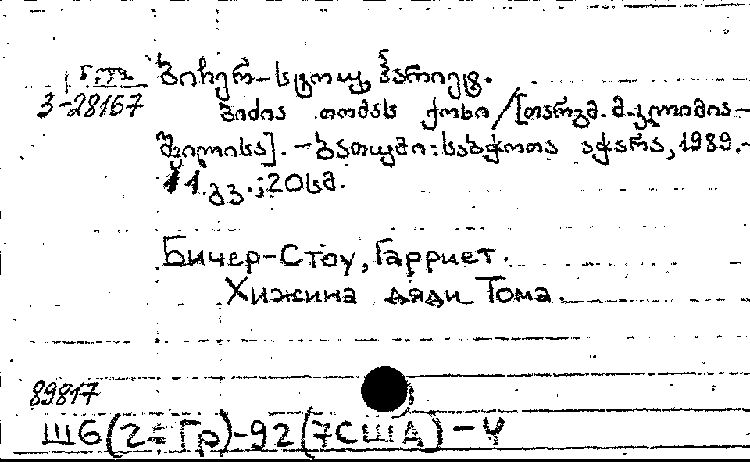 ბიჩერ-სტოუ, ჰარიეტ.
3-28167
ბიძია თომას ქოხი / [თარგმ. მ. კლიმია-
შვილისა]. - ბათუმი: საბჭოთა აჭარა, 1989.-
11 გვ.; 20სმ.
Бичер-Стоу, Гарриет.
Хижина дяди Тома.
89817
Ш6(2=Гр)-92(7США)-4